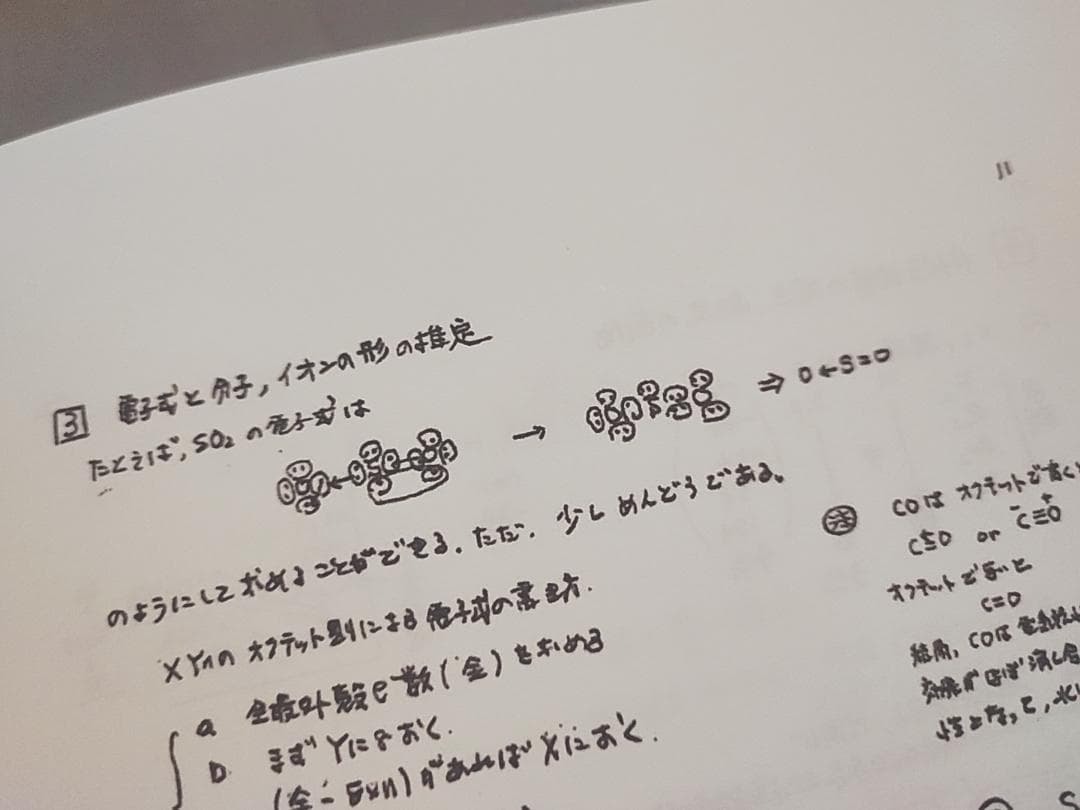 11
3 電子式と分子,イオンの形の推定
たとえば,SO₂の電子式は
→ ⇒ O←S=O
のようにして求めることができる.ただ,少しめんどうである.
XYnのオクテット則による電子式の書き方.
a 全最外殻e⁻数(全)を求める
b まずYに8おく.
(全-8×n)があればXにおく.
注 COはオクテットで書くと
C≦O or ⁻C≡O⁺
オクテットでないと
C=O
結局,COは
効果がほぼ消し
性となって,水に
S